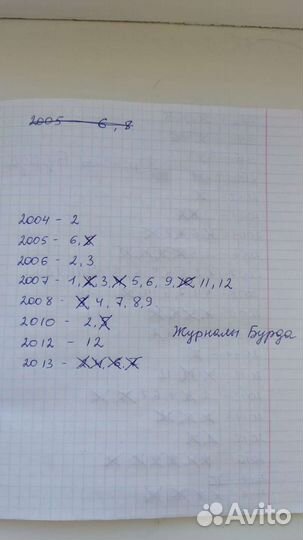 2005 6, 8
2004 - 2
2005 - 6, 8
2006 - 2, 3
2007 - 1, 2, 3, 4, 5, 6, 9, 10, 11, 12
2008 - 4, 7, 8, 9
2010 - 2,
Журналы Бурда
2012 - 12
2013 -
Avito